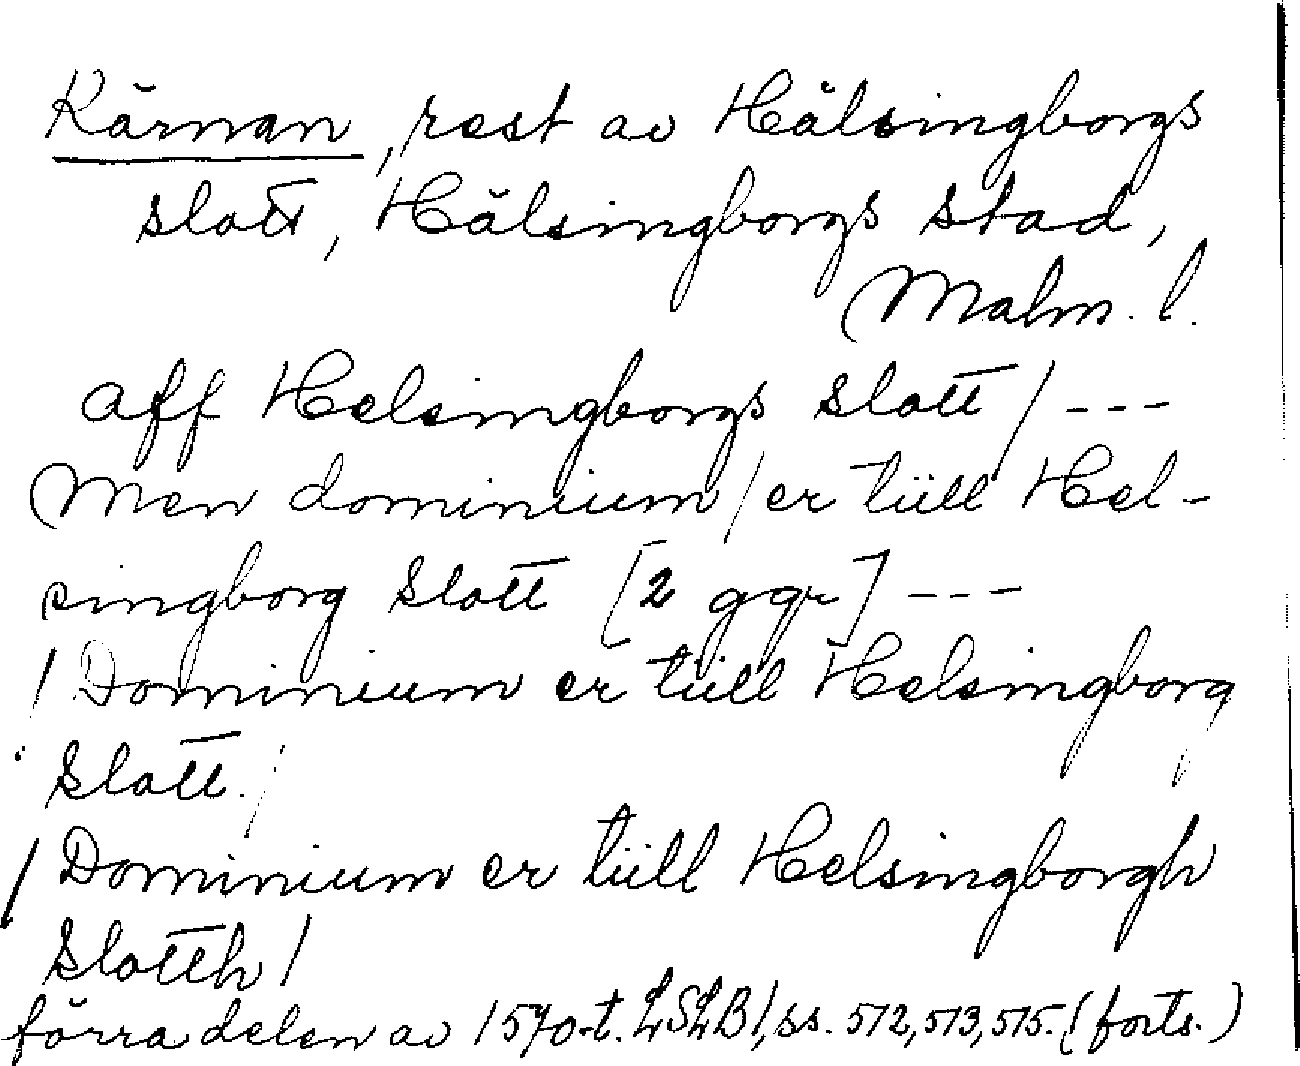 Kärnan, rest av Hälsingborgs
slott, Hälsingborgs stad,
Malm. l.
aff Helsingborgs Slott / ---
Men dominium / er tiill Hel-
singborg Slott [2 ggr] ---
/ Dominium er tiill Helsingborg
Slott. /
/ Dominium er tiill Helsingborgh
Slotth /
förra delen av 1570-t. LSLB1, ss. 512, 513, 515. (forts.)